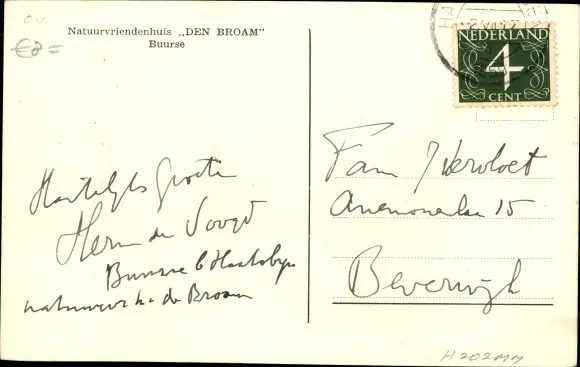 Natuurvriendenhuis „DEN BROAM"
Buurse
NEDERLAND
4
CENT
Hartelijks Groeten
Herm de Voogd
Buurse b Haaksbgn
natuurvr h. de Broam
Fam J Kervloet
Anemonenlaan 15
Beverwijk
H202MM